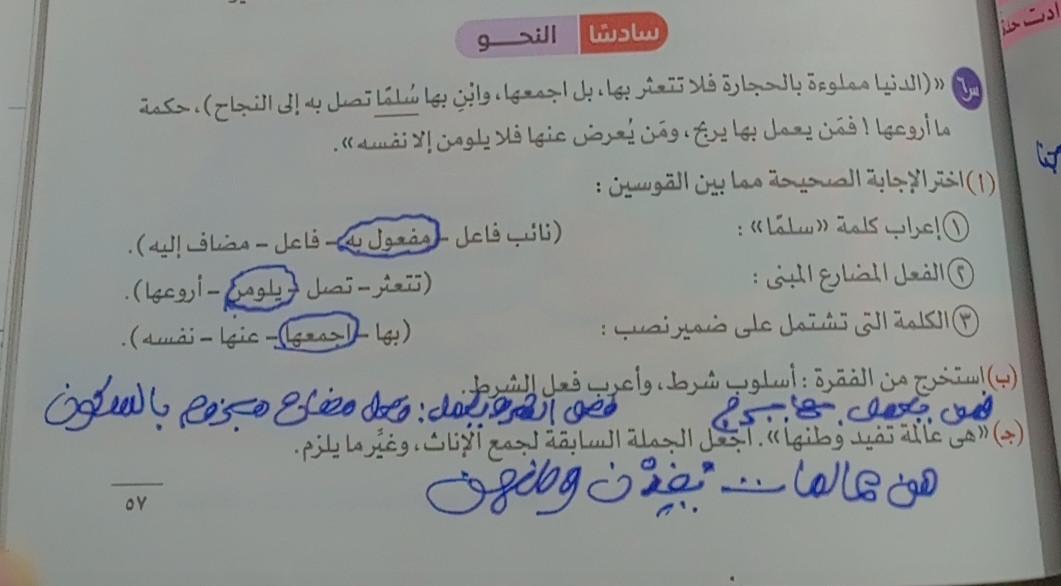 سادسًا النحــو
س٦ «(الدنيا مملوءة بالحجارة فلا تتعثر بها، بل اجمعها، وابْنِ بها سُلمًا تصل به إلى النجاح)، حكمة
ما أروعها! فمَن يعمل بها يربح، ومَن يُعرض عنها فلا يلومن إلا نفسه».
(أ) اختر الإجابة الصحيحة مما بين القوسين :
١ إعراب كلمة «سلمًا» : (نائب فاعل - مفعول به - فاعل - مضاف إليه).
٢ الفعل المضارع المبنى : (تتعثر - تصل - يلومن - أروعها).
٣ الكلمة التى تشتمل على ضمير نصب : (بها - اجمعها - عنها - نفسه).
(ب) استخرج من الفقرة : أسلوب شرط، وأعرب فعل الشرط.
فمن يعمل بها يربح فعل الشرط يعمل: فعل مضارع مجزوم بالسكون
(جـ) «هى عالمة تفيد وطنها». اجعل الجملة السابقة لجمع الإناث، وغيِّر ما يلزم.
هن عالمات يفدْن وطنهن
٥٧